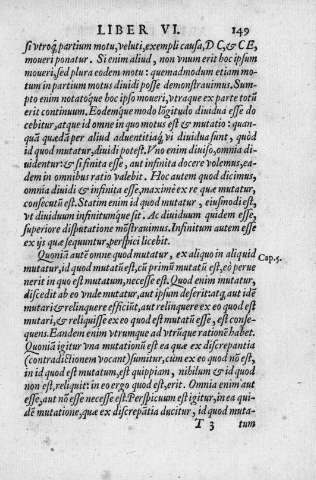 LIBER VI. 149
si vtroq; partium motu, veluti, exempli causa, D C, & C E,
moueri ponatur. Si enim aliud, non vnum erit hoc ipsum
moueri, sed plura eodem motu: quemadmodum etiam mo-
tum in partium motus diuidi posse demonstrauimus. Sum-
pto enim notatoq́ue hoc ipso moueri, vtraque ex parte totũ
erit continuum. Eodemque modo lõgitudo diuidua esse do
cebitur, atque id omne in quo motus est & mutatio: quan-
quã quædã per aliud aduentitiaq́; vi diuidua sunt, quòd
id quod mutatur, diuidi potest. Vno enim diuiso, omnia di-
uidentur: & si finita esse, aut infinita docere volemus, ea-
dem in omnibus ratio valebit. Hoc autem quod dicimus,
omnia diuidi & infinita esse, maximè ex re quæ mutatur,
consecutũ est. Statim enim id quod mutatur, eiusmodi est,
vt diuiduum infinitumque sit. Ac diuiduum quidem esse,
superiore disputatione mõstrauimus. Infinitum autem esse
ex ijs quæ sequuntur, perspici licebit.
Quoniã autẽ omne quod mutatur, ex aliquo in aliquid Cap. 5.
mutatur, id quod mutatũ est, cùm primũ mutatũ est, eò perue
nerit in quo est mutatum, necesse est. Quod enim mutatur,
discedit ab eo vnde mutatur, aut ipsum deserit: atq; aut idẽ
mutari & relinquere efficiũt, aut relinquere ex eo quod est
mutari, & reliquisse ex eo quod est mutatũ esse, est conse-
quens. Eandem enim vtrumque ad vtrũque rationẽ habet.
Quoniã igitur vna mutationũ est ea quæ ex discrepantia
(contradictionem vocant) sumitur, cùm ex eo quod nõ est,
in id quod est mutatum, est quippiam, nihilum & id quod
non est, reliquit: in eo ergo quod est, erit. Omnia enim aut
esse, aut nõ esse necesse est. Perspicuum est igitur, in ea qui-
dẽ mutatione, quæ ex discrepãtia ducitur, id quod muta-
T 3 tum